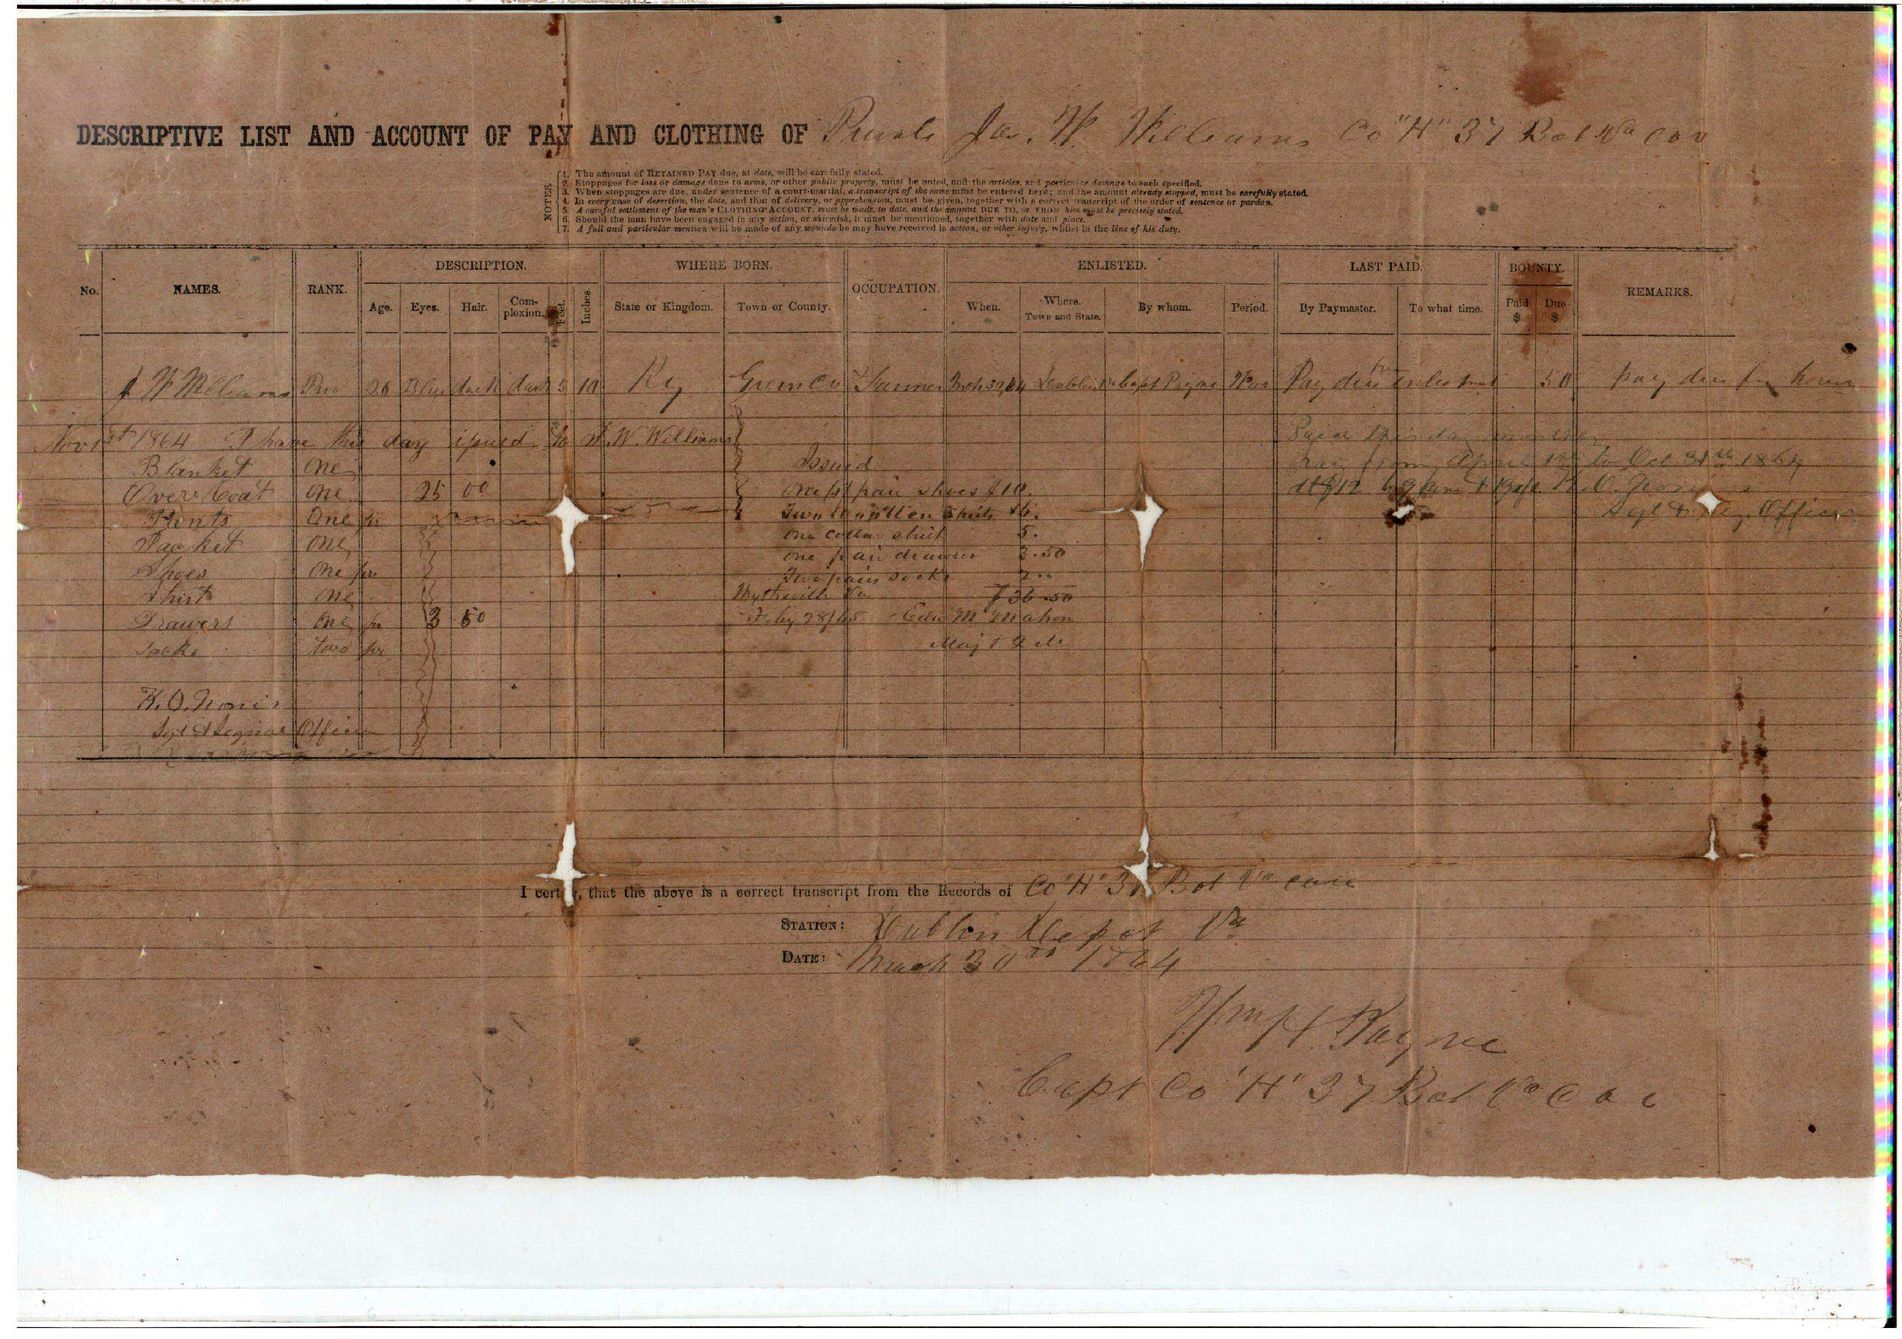 DESCRIPTIVE LIST AND ACCOUNT OF PAY AND CLOTHING OF Private Jas. W. Williams Co "H" 37 Bat Va Cav
NOTES.
1. The amount of RETAINED PAY due, at date, will be carefully stated.
2. Stoppages for loss or damage done to arms, or other public property, must be noted, and the articles, and particular damage to each specified.
3. When stoppages are due, under sentence of a court-martial, a transcript of the same must be entered here; and the amount already stopped, must be carefully stated.
4. In every case of desertion, the date, and that of delivery, or apprehension, must be given, together with a correct transcript of the order of sentence or pardon.
5. A careful settlement of the man's CLOTHING ACCOUNT, must be made, to date, and the amount DUE TO, or FROM him must be precisely stated.
6. Should the man have been engaged in any action, or skirmish, it must be mentioned, together with date and place.
7. A full and particular mention will be made of any wounds he may have received in action, or other injury, whilst in the line of his duty.
No. NAMES. RANK. DESCRIPTION. WHERE BORN. OCCUPATION. ENLISTED. LAST PAID. BOUNTY. REMARKS.
Age. Eyes. Hair. Complexion. Feet. Inches. State or Kingdom. Town or County. When. Where. Town and State. By whom. Period. By Paymaster. To what time. Paid $ Due $
J W Williams Priv 26 Blue dark dark 5 10 Ky Green Co Farmer Dublin Capt Payne War Pay due from enlistment 50 Pay due for horse
Nov 1st 1864 I have this day issued to J. W. Williams
Paid this day
pay from April 1st to Oct 31st 1864
Blanket one
Issued
Over Coat one 25 00
one pair shoes $10.
Pants One pr
Two cotton shirts 16.
Jacket one
one cotton shirt 5.
Shoes one pr
one pair drawers 3.50
Shirt one
Two pair socks 2
Wytheville Va $36.50
Drawers one pr 3 50
Feby 28/65 Edw McMahon
Socks two pr
Maj & Q M
K. O.
Sgt & Officer
I certify, that the above is a correct transcript from the Records of Co "H" 37 Bat Va Cav
STATION: Dublin Depot Va
DATE: March 30th 1864
Wm H. Payne
Capt Co "H" 37 Bat Va Cav